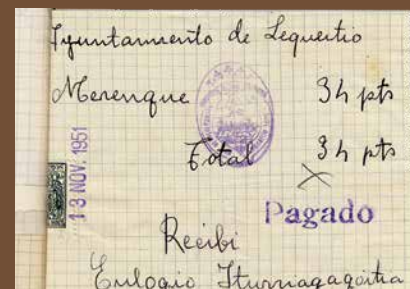 Ayuntamiento de Lequeitio
Merenque 34 pts
Total 34 pts
13 NOV. 1951
Pagado
Recibi
Eulogio Iturriagagoitia